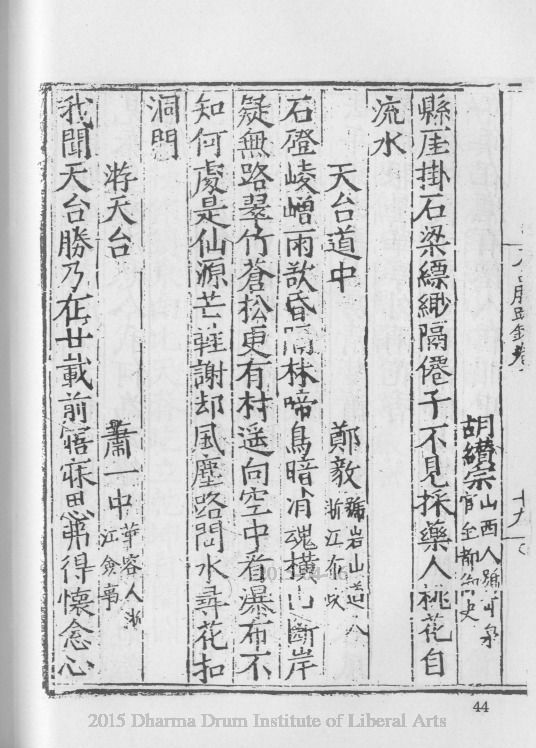 胡纘宗山西人號可泉
官至都御史
縣厓掛石梁縹緲隔僊子不見採藥人桃花自
流水
天台道中
鄭敦號岩山
浙江
石磴崚嶒雨歆昏隔林啼鳥暗消魂橫山斷岸
疑無路翠竹蒼松更有村遥向空中看瀑布不
知何處是仙源芒鞋謝却風塵路問水尋花扣
洞門
游天台
蕭一中華容人浙
江僉事
我聞天台勝乃在廿載前寤寐思弗得懷念心
44
2015 Dharma Drum Institute of Liberal Arts